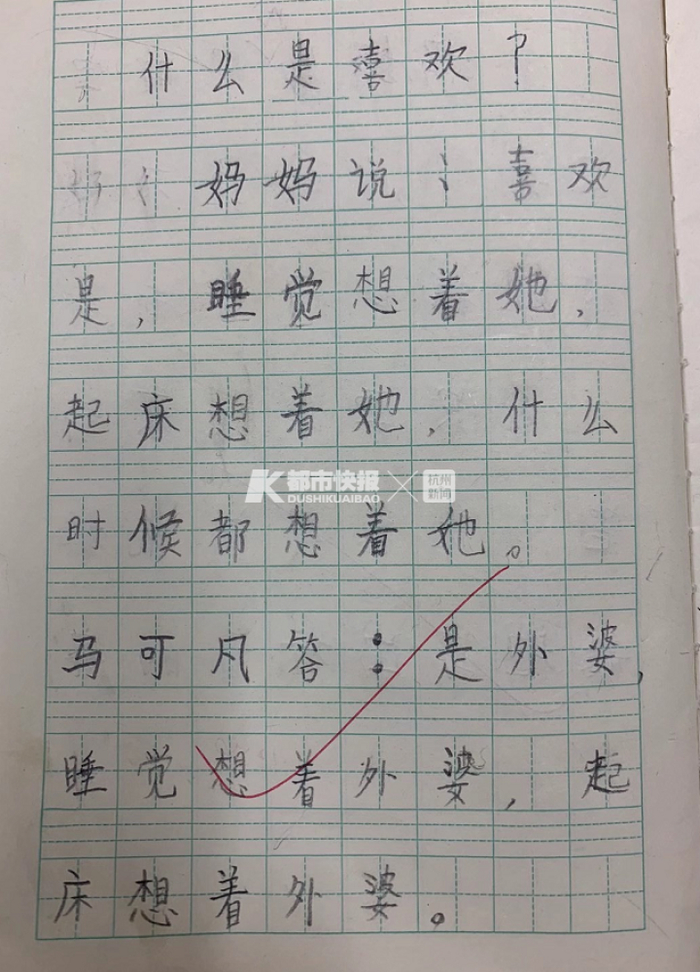 什么是喜欢?
妈妈说:喜欢
是,睡觉想着她,
起床想着她,什么
K都市快报 × 杭州新闻
DUSHIKUAIBAO
时候都想着她。
马可凡答:是外婆,
睡觉想着外婆,起
床想着外婆。